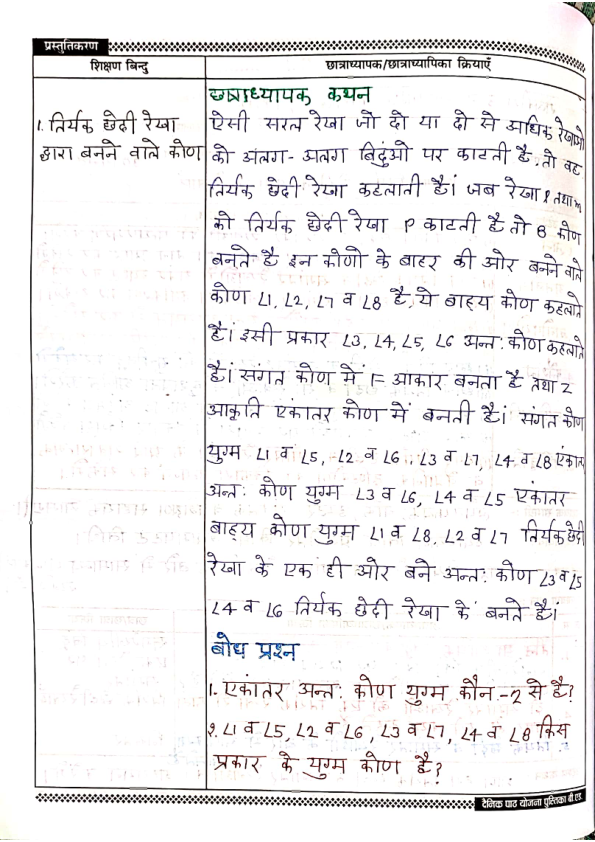 प्रस्तुतिकरण
शिक्षण बिन्दु
छात्राध्यापक/छात्राध्यापिका क्रियाएँ
छात्राध्यापक कथन
1. तिर्यक छेदी रेखा
द्वारा बनने वाले कोण
ऐसी सरल रेखा जो दो या दो से अधिक रेखाओ
को अलग-अलग बिदुंओ पर काटती है, तो वह
तिर्यक छेदी रेखा कहलाती है। जब रेखा l तथा m
को तिर्यक छेदी रेखा P काटती है तो 8 कोण
बनते है इन कोणो के बाहर की ओर बनने वाले
कोण ∠1, ∠2, ∠7 व ∠8 है, ये बाह्य कोण कहलाते
है। इसी प्रकार ∠3, ∠4, ∠5, ∠6 अन्त: कोण कहलाते
है। संगत कोण में F आकार बनता है तथा Z
आकृति एकांतर कोण में बनती है। संगत कोण
युग्म ∠1 व ∠5, ∠2 व ∠6, ∠3 व ∠7, ∠4 व ∠8 एकांतर
अन्त: कोण युग्म ∠3 व ∠6, ∠4 व ∠5 एकांतर
बाह्य कोण युग्म ∠1 व ∠8, ∠2 व ∠7 तिर्यक छेदी
रेखा के एक ही ओर बने अन्त: कोण ∠3 व ∠5
∠4 व ∠6 तिर्यक छेदी रेखा के बनते है।
बोध प्रश्न
1. एकांतर अन्त: कोण युग्म कौन-2 से है?
2. ∠1 व ∠5, ∠2 व ∠6, ∠3 व ∠7, ∠4 व ∠8 किस
प्रकार के युग्म कोण है?
दैनिक पाठ योजना पुस्तिका बी.एड.